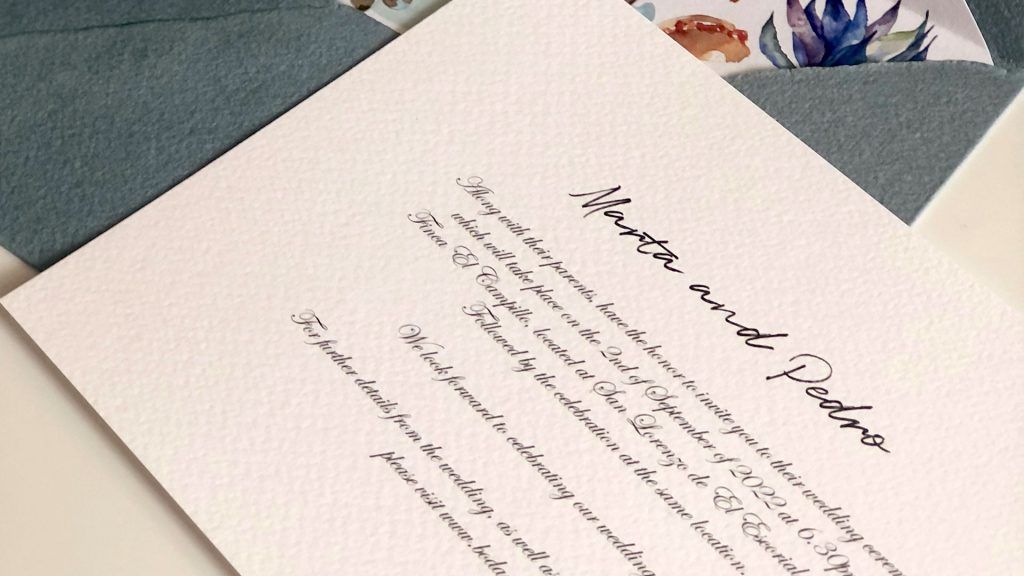 Marta and Pedro
Along with their parents, have the honor to invite you to their wedding
which will take place on the 2nd of September of 2022 at 6.30
Finca El Campillo, located at San Lorenzo de El Escorial
Followed by the celebration at the same location.
We look forward to celebrating our wedding
For further details from the wedding, as well as
please visit www.boda